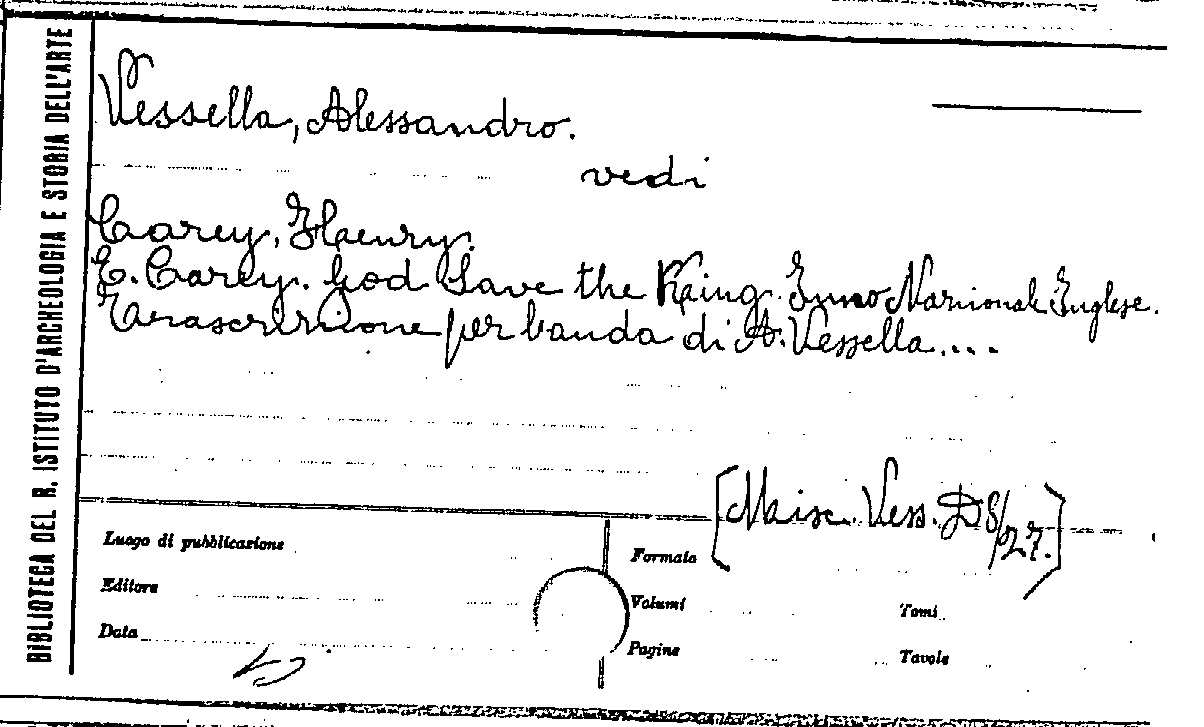 BIBLIOTECA DEL R. ISTITUTO D'ARCHEOLOGIA E STORIA DELL'ARTE
Vessella, Alessandro.
vedi
Carey, Henry.
E. Carey. God Save the King. Inno Nazionale Inglese.
Trascrizione per banda di A. Vessella....
[Misc. Vess. D 8/27.]
Luogo di pubblicazione
Formato
Editore
Volumi
Tomi
Data
Pagine
Tavole